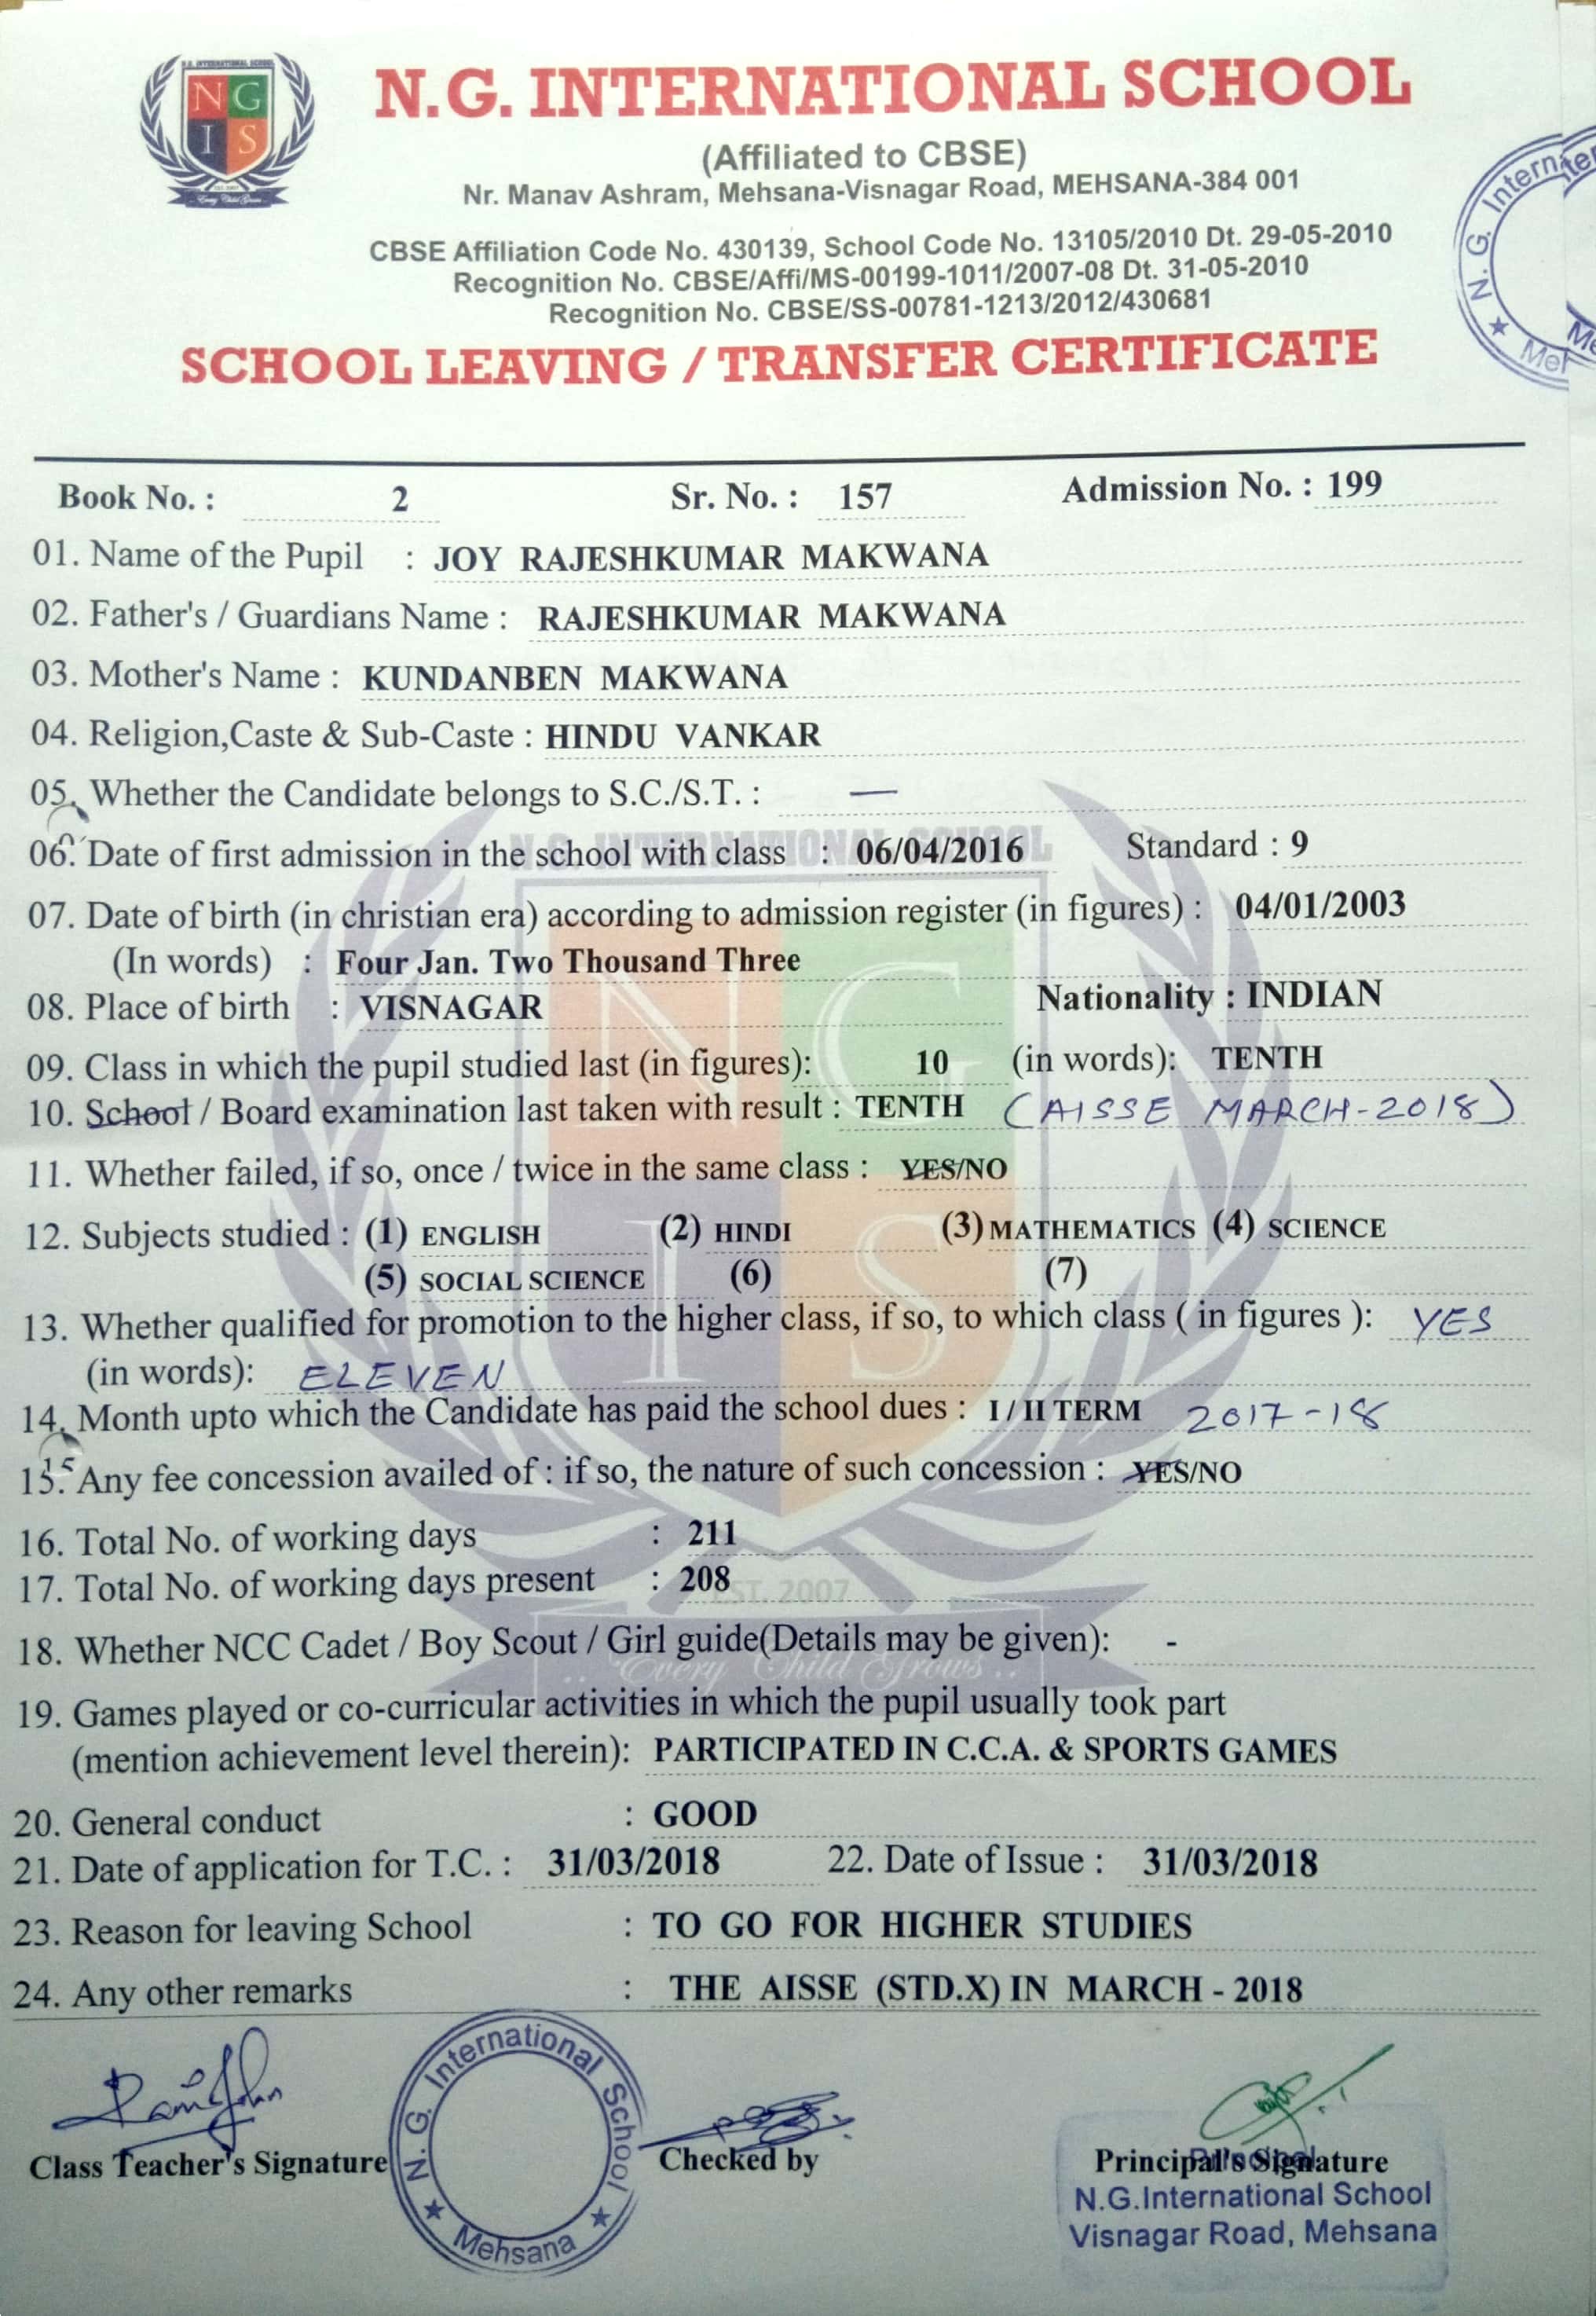 N.G. INTERNATIONAL SCHOOL
NG
IS
Every Child Grows
N.G. INTERNATIONAL SCHOOL
(Affiliated to CBSE)
Nr. Manav Ashram, Mehsana-Visnagar Road, MEHSANA-384 001
CBSE Affiliation Code No. 430139, School Code No. 13105/2010 Dt. 29-05-2010
Recognition No. CBSE/Affi/MS-00199-1011/2007-08 Dt. 31-05-2010
Recognition No. CBSE/SS-00781-1213/2012/430681
N. G. Internate
Meh
SCHOOL LEAVING / TRANSFER CERTIFICATE
Book No. : 2 Sr. No. : 157 Admission No. : 199
01. Name of the Pupil : JOY RAJESHKUMAR MAKWANA
02. Father's / Guardians Name : RAJESHKUMAR MAKWANA
03. Mother's Name : KUNDANBEN MAKWANA
04. Religion,Caste & Sub-Caste : HINDU VANKAR
05. Whether the Candidate belongs to S.C./S.T. : —
N.G. INTERNATIONAL SCHOOL
06. Date of first admission in the school with class : 06/04/2016 Standard : 9
07. Date of birth (in christian era) according to admission register (in figures) : 04/01/2003
(In words) : Four Jan. Two Thousand Three
08. Place of birth : VISNAGAR Nationality : INDIAN
NG
09. Class in which the pupil studied last (in figures): 10 (in words): TENTH
10. School / Board examination last taken with result : TENTH (AISSE MARCH-2018)
11. Whether failed, if so, once / twice in the same class : YES/NO
12. Subjects studied : (1) ENGLISH (2) HINDI (3) MATHEMATICS (4) SCIENCE
(5) SOCIAL SCIENCE (6) (7)
IS
13. Whether qualified for promotion to the higher class, if so, to which class ( in figures ): YES
(in words): ELEVEN
14. Month upto which the Candidate has paid the school dues : I / II TERM 2017-18
15. Any fee concession availed of : if so, the nature of such concession : YES/NO
16. Total No. of working days : 211
17. Total No. of working days present : 208
EST. 2007
18. Whether NCC Cadet / Boy Scout / Girl guide(Details may be given): -
.. Every Child Grows ..
19. Games played or co-curricular activities in which the pupil usually took part
(mention achievement level therein): PARTICIPATED IN C.C.A. & SPORTS GAMES
20. General conduct : GOOD
21. Date of application for T.C. : 31/03/2018 22. Date of Issue : 31/03/2018
23. Reason for leaving School : TO GO FOR HIGHER STUDIES
24. Any other remarks : THE AISSE (STD.X) IN MARCH - 2018
N. G. International School
Mehsana
Class Teacher's Signature Checked by Principal's Signature
Principal
N.G.International School
Visnagar Road, Mehsana